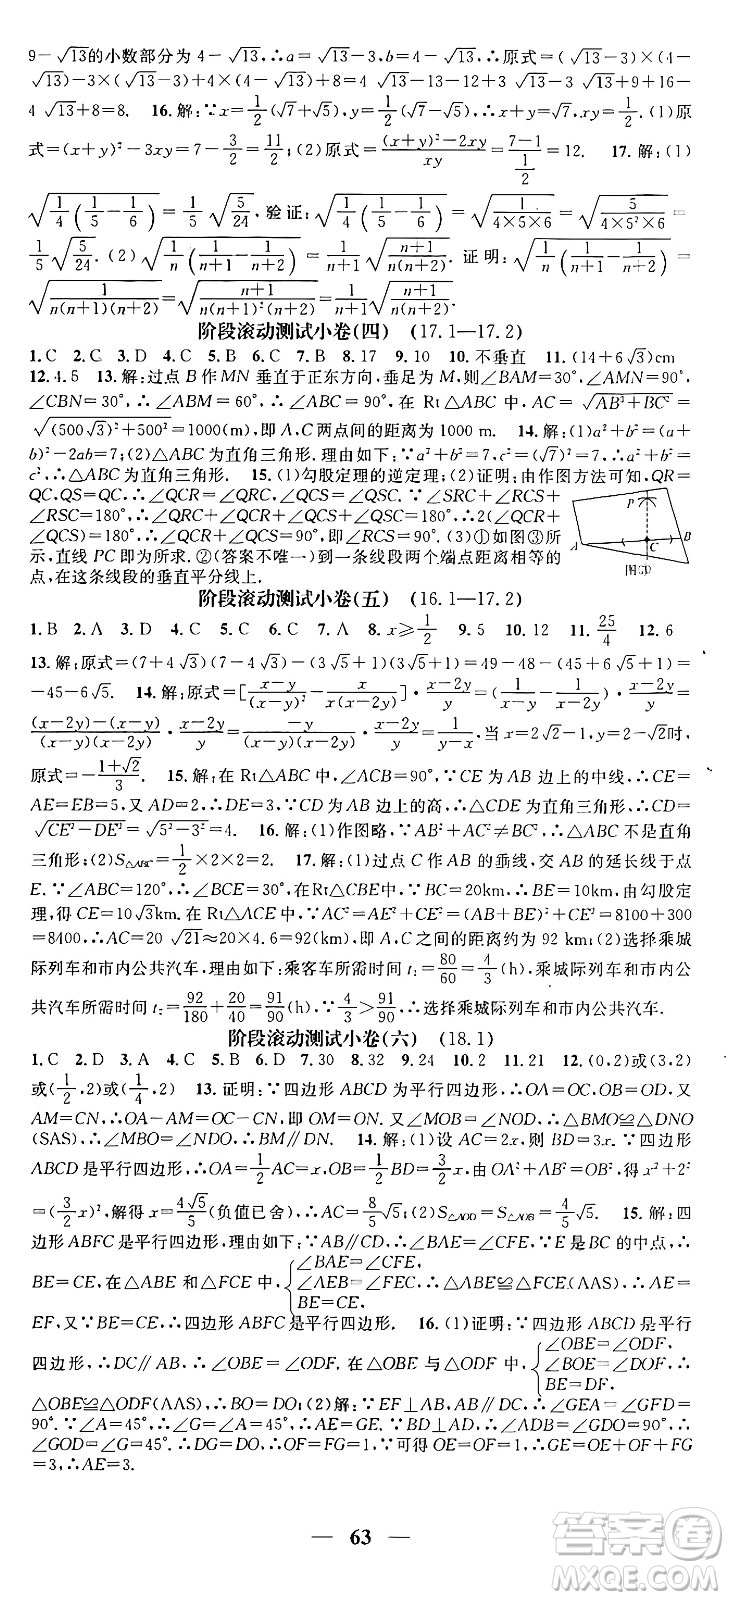 9-√13的小数部分为4-√13,∴a=√13-3,b=4-√13,∴原式=(√13-3)×(4-
√13)-3×(√13-3)+4×(4-√13)+8=4√13-13-12+3√13-3√13+9+16-
4√13+8=8. 16.解:∵x=1/2(√7+√5),y=1/2(√7-√5),∴x+y=√7,xy=1/2.(1)原
式=(x+y)²-3xy=7-3/2=11/2;(2)原式=((x+y)²-2xy)/xy=(7-1)/(1/2)=12. 17.解:(1)
√(1/4(1/5-1/6))=1/5√(5/24).验证:√(1/4(1/5-1/6))=√(1/(4×5×6))=√(5/(4×5²×6))=
1/5√(5/24).(2)√(1/n(1/(n+1)-1/(n+2)))=1/(n+1)√((n+1)/(n(n+2))).证明:√(1/n(1/(n+1)-1/(n+2)))=
√(1/(n(n+1)(n+2)))=√((n+1)/(n(n+1)²(n+2)))=1/(n+1)√((n+1)/(n(n+2))).
阶段滚动测试小卷(四) (17.1—17.2)
1.C 2.C 3.D 4.C 5.B 6.C 7.B 8.17 9.10 10.不垂直 11.(14+6√3)cm
12.4.5 13.解:过点B作MN垂直于正东方向,垂足为M,则∠BAM=30°,∠AMN=90°,
∠CBN=30°,∴∠ABM=60°,∴∠ABC=90°.在Rt△ABC中,AC=√(AB²+BC²)=
√((500√3)²+500²)=1000(m),即A,C两点间的距离为1000 m. 14.解:(1)a²+b²=(a+
b)²-2ab=7;(2)△ABC为直角三角形.理由如下:∵a²+b²=7,c²=(√7)²=7,∴a²+b²=
c²,∴△ABC为直角三角形. 15.(1)勾股定理的逆定理;(2)证明:由作图方法可知,QR=
QC,QS=QC,∴∠QCR=∠QRC,∠QCS=∠QSC.∵∠SRC+∠RCS+
∠RSC=180°,∴∠QRC+∠QCR+∠QCS+∠QSC=180°,∴2(∠QCR+
∠QCS)=180°,∴∠QCR+∠QCS=90°,即∠RCS=90°.(3)①如图③所
示,直线PC即为所求.②(答案不唯一)到一条线段两个端点距离相等的
点,在这条线段的垂直平分线上.
P
A
C
B
阶段滚动测试小卷(五) (16.1—17.2)
1.B 2.A 3.D 4.C 5.C 6.A 7.C 8.x≥1/2 9.5 10.12 11.25/4 12.6
13.解:原式=(7+4√3)(7-4√3)-(45-6√5+1)=49-48-(45+1-6√5)=1-46+6√5=
-45-6√5. 14.解:原式=[(x-y)/(x-y)²-x/((x-y)(x-2y))]·(x-2y)/y=(1/(x-y)-x/((x-y)(x-2y)))·(x-2y)/y=
((x-2y)-(x-y))/((x-y)(x-2y))·(x-2y)/y=-y/((x-y)(x-2y))·(x-2y)/y=-1/(x-y)=1/(y-x),当x=2√2,y=√2-1时,
原式=-(1+√2)/3. 15.解:在Rt△ABC中,∠ACB=90°,∵CE为AB边上的中线,∴CE=
AE=EB=5,又AD=2,∴DE=3,∵CD为AB边上的高,∴△CDE为直角三角形,∴CD=
√(CE²-DE²)=√(5²-3²)=4. 16.解:(1)作图略,∵AB²+AC²≠BC²,∴△ABC不是直角
三角形;(2)S△ABC=1/2×2×2=2. 17.解:(1)过点C作AB的垂线,交AB的延长线于点
E.∵∠ABC=120°,∴∠BCE=30°,在Rt△CBE中,∵BC=20km,∴BE=10km,由勾股定
理,可得CE=10√3(km),在Rt△ACE中,∵AC²=AE²+CE²=(AB+BE)²+CE²=8100+300
=8400,∴AC=20√21≈20×4.6=92(km),即A,C之间的距离约为92 km;(2)选择乘城
际列车和市内公共汽车.理由如下:乘客车所需时间t₁=80/60=4/3(h),乘城际列车和市内公
共汽车所需时间t₂=92/180+20/40+1/90=91/90(h),∵4/3>91/90,∴选择乘城际列车和市内公共汽车.
阶段滚动测试小卷(六) (18.1)
1.C 2.D 3.C 4.A 5.B 6.D 7.30 8.32 9.24 10.2 11.21 12.(0,2)或(3,2)
或(1/2,2)或(1/4,2) 13.证明:∵四边形ABCD为平行四边形,∴OA=OC,OB=OD.又∵
AM=CN,∴OA-AM=OC-CN,即OM=ON.又∠MOB=∠NOD,∴△BMO≌△DNO
(SAS),∴∠MBO=∠NDO,∴BM∥DN. 14.解:(1)设AC=2x,则BD=3x.∵四边形
ABCD是平行四边形,∴OA=1/2AC=x,OB=1/2BD=3/2x.∵OA²+AB²=OB²,得x²+2²=
=(3/2x)²,解得x=4√5/5(负值已舍),∴AC=8/5√5;(2)S△AOD=S△AOB=4/5√5. 15.解:四
边形ABFC是平行四边形,理由如下:∵AB∥CD,∴∠BAE=∠CFE,∵E是BC的中点,∴
BE=CE,在△ABE和△FCE中,{∠BAE=∠CFE,∠AEB=∠FEC,BE=CE,∴△ABE≌△FCE(AAS),∴AE=
EF,又∵BE=CE,∴四边形ABFC是平行四边形. 16.(1)证明:∵四边形ABCD是平行
四边形,∴DC∥AB,∴∠OBE=∠ODF.在△OBE与△ODF中,{∠OBE=∠ODF,∠BOE=∠DOF,BE=DF,∴
△OBE≌△ODF(AAS),∴BO=DO;(2)解:∵EF⊥AB,AB∥DC,∴∠GEA=∠GFD=
90°.∵∠A=45°,∴∠G=∠A=45°,∴AE=GE.∵BD⊥AD,∴∠ADB=∠GDO=90°,∴
∠GOD=∠G=45°.∴DG=DO,∴OF=FG=1,∵可得OE=OF=1,∴GE=OE+OF+FG
=3,∴AE=3.
63
答案圈
MXQE.COM